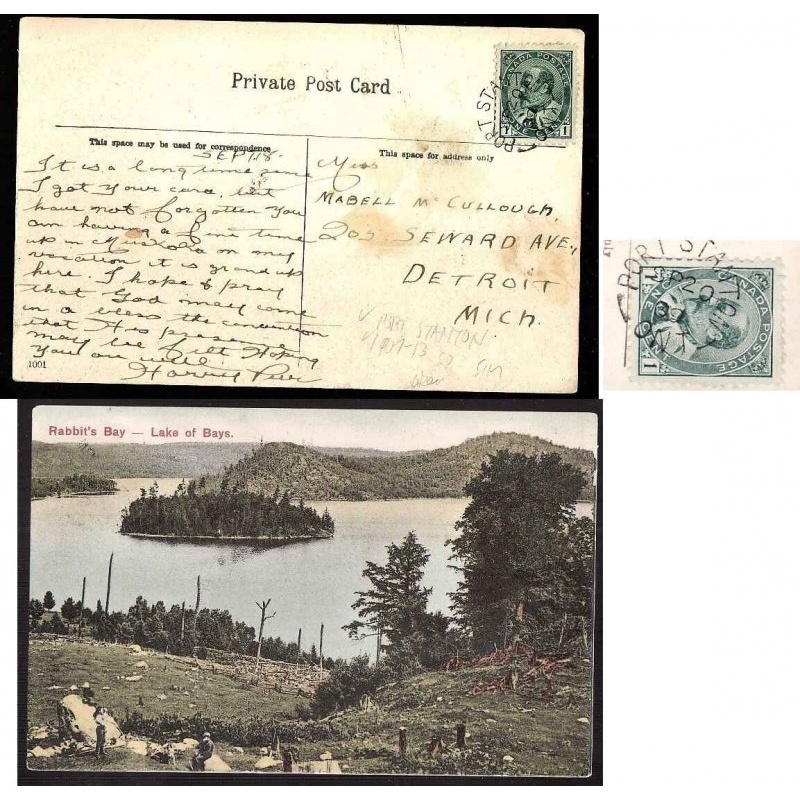 Private Post Card
CANADA POSTAGE
PORT STANTON
1 1
This space may be used for correspondence
This space for address only
SEPT.18.
It is a long time since
I got your card, but
have not forgotten you
am having a fine time
up in Muskoka on my
vacation it is grand up
here. I hope & pray
that God may come
in & bless the convention
that His presence
may be felt Hoping
You are well
1001
Miss
MABELL McCULLOUGH,
205 SEWARD AVE.,
DETROIT
MICH.
PORT STANTON
1907-13 50
SIM
PORT STANTON
SP 20
09
ONT
CANADA POSTAGE
1
Rabbit's Bay — Lake of Bays.